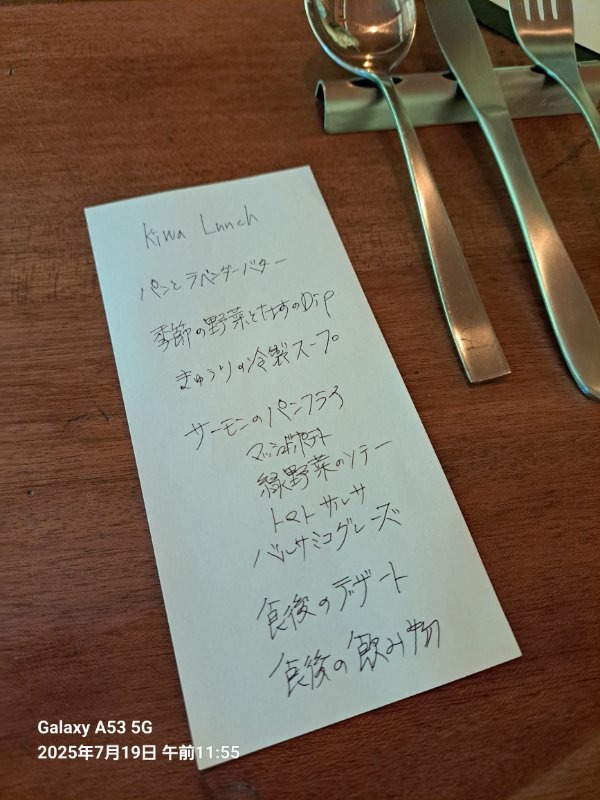 Kiwa Lunch
パンとラベンダーバター
季節の野菜となすのDip
きゅうりの冷製スープ
サーモンのパンフライ
マッシュドポテト
緑野菜のソテー
トマトサルサ
バルサミコグレーズ
食後のデザート
食後の飲み物
Galaxy A53 5G
2025年7月19日 午前11:55